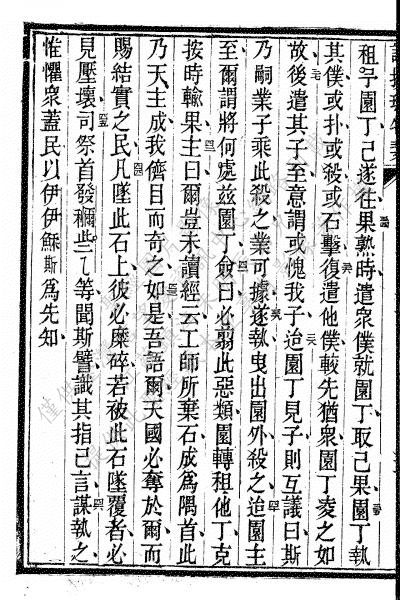 租與園丁己遂徃果熟時遣衆僕就園丁取己果園丁執
其僕或扑或殺或石擊復遣他僕較先猶衆園丁夌之如
故後遣其子至意謂或愧我子迨園丁見子則互議曰斯
乃嗣業子乘此殺之業可據遂執曳出園外殺之迨園主
至爾謂將何處玆園丁僉曰必翦此惡類園轉租他丁克
按時輸果主曰爾豈未讀經云工師所棄石成爲隅首此
乃天主成我儕目而奇之如是吾語爾天國必奪於爾而
賜結實之民凡墜此石上彼必糜碎若被此石墜覆者必
見壓壞司祭首發穪些乀等聞斯譬識其指己言謀執之
惟懼衆蓋民以伊伊穌斯爲先知